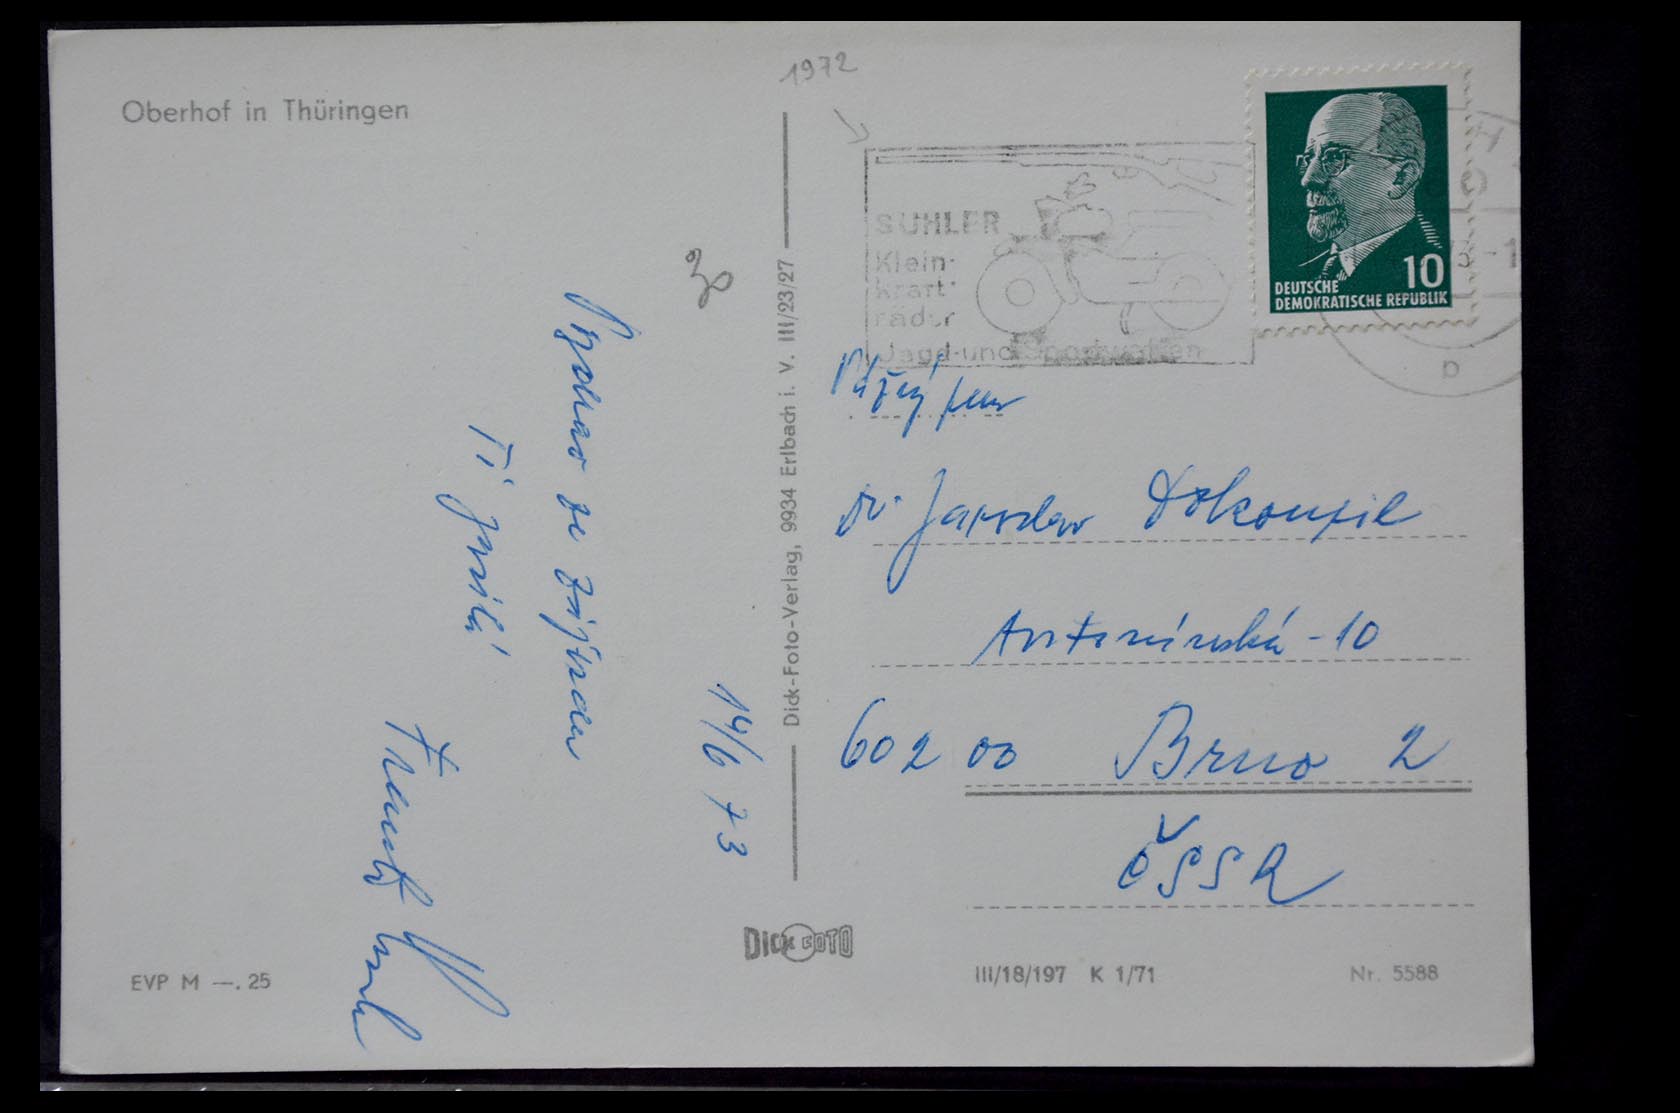 Oberhof in Thüringen
1972
SUHLER
Klein-
kraft-
räder
Jagd-und Sportwaffen
DEUTSCHE
DEMOKRATISCHE REPUBLIK
10
p
30
se
Ti
14/6 73
Dick-Foto-Verlag, 9934 Erlbach i. V. III/23/27
Vážený pan
dr. Jaroslav Dokoupil
Antonínská - 10
602 00 Brno 2
ČSSR
DICK FOTO
EVP M —.25
III/18/197 K 1/71
Nr. 5588